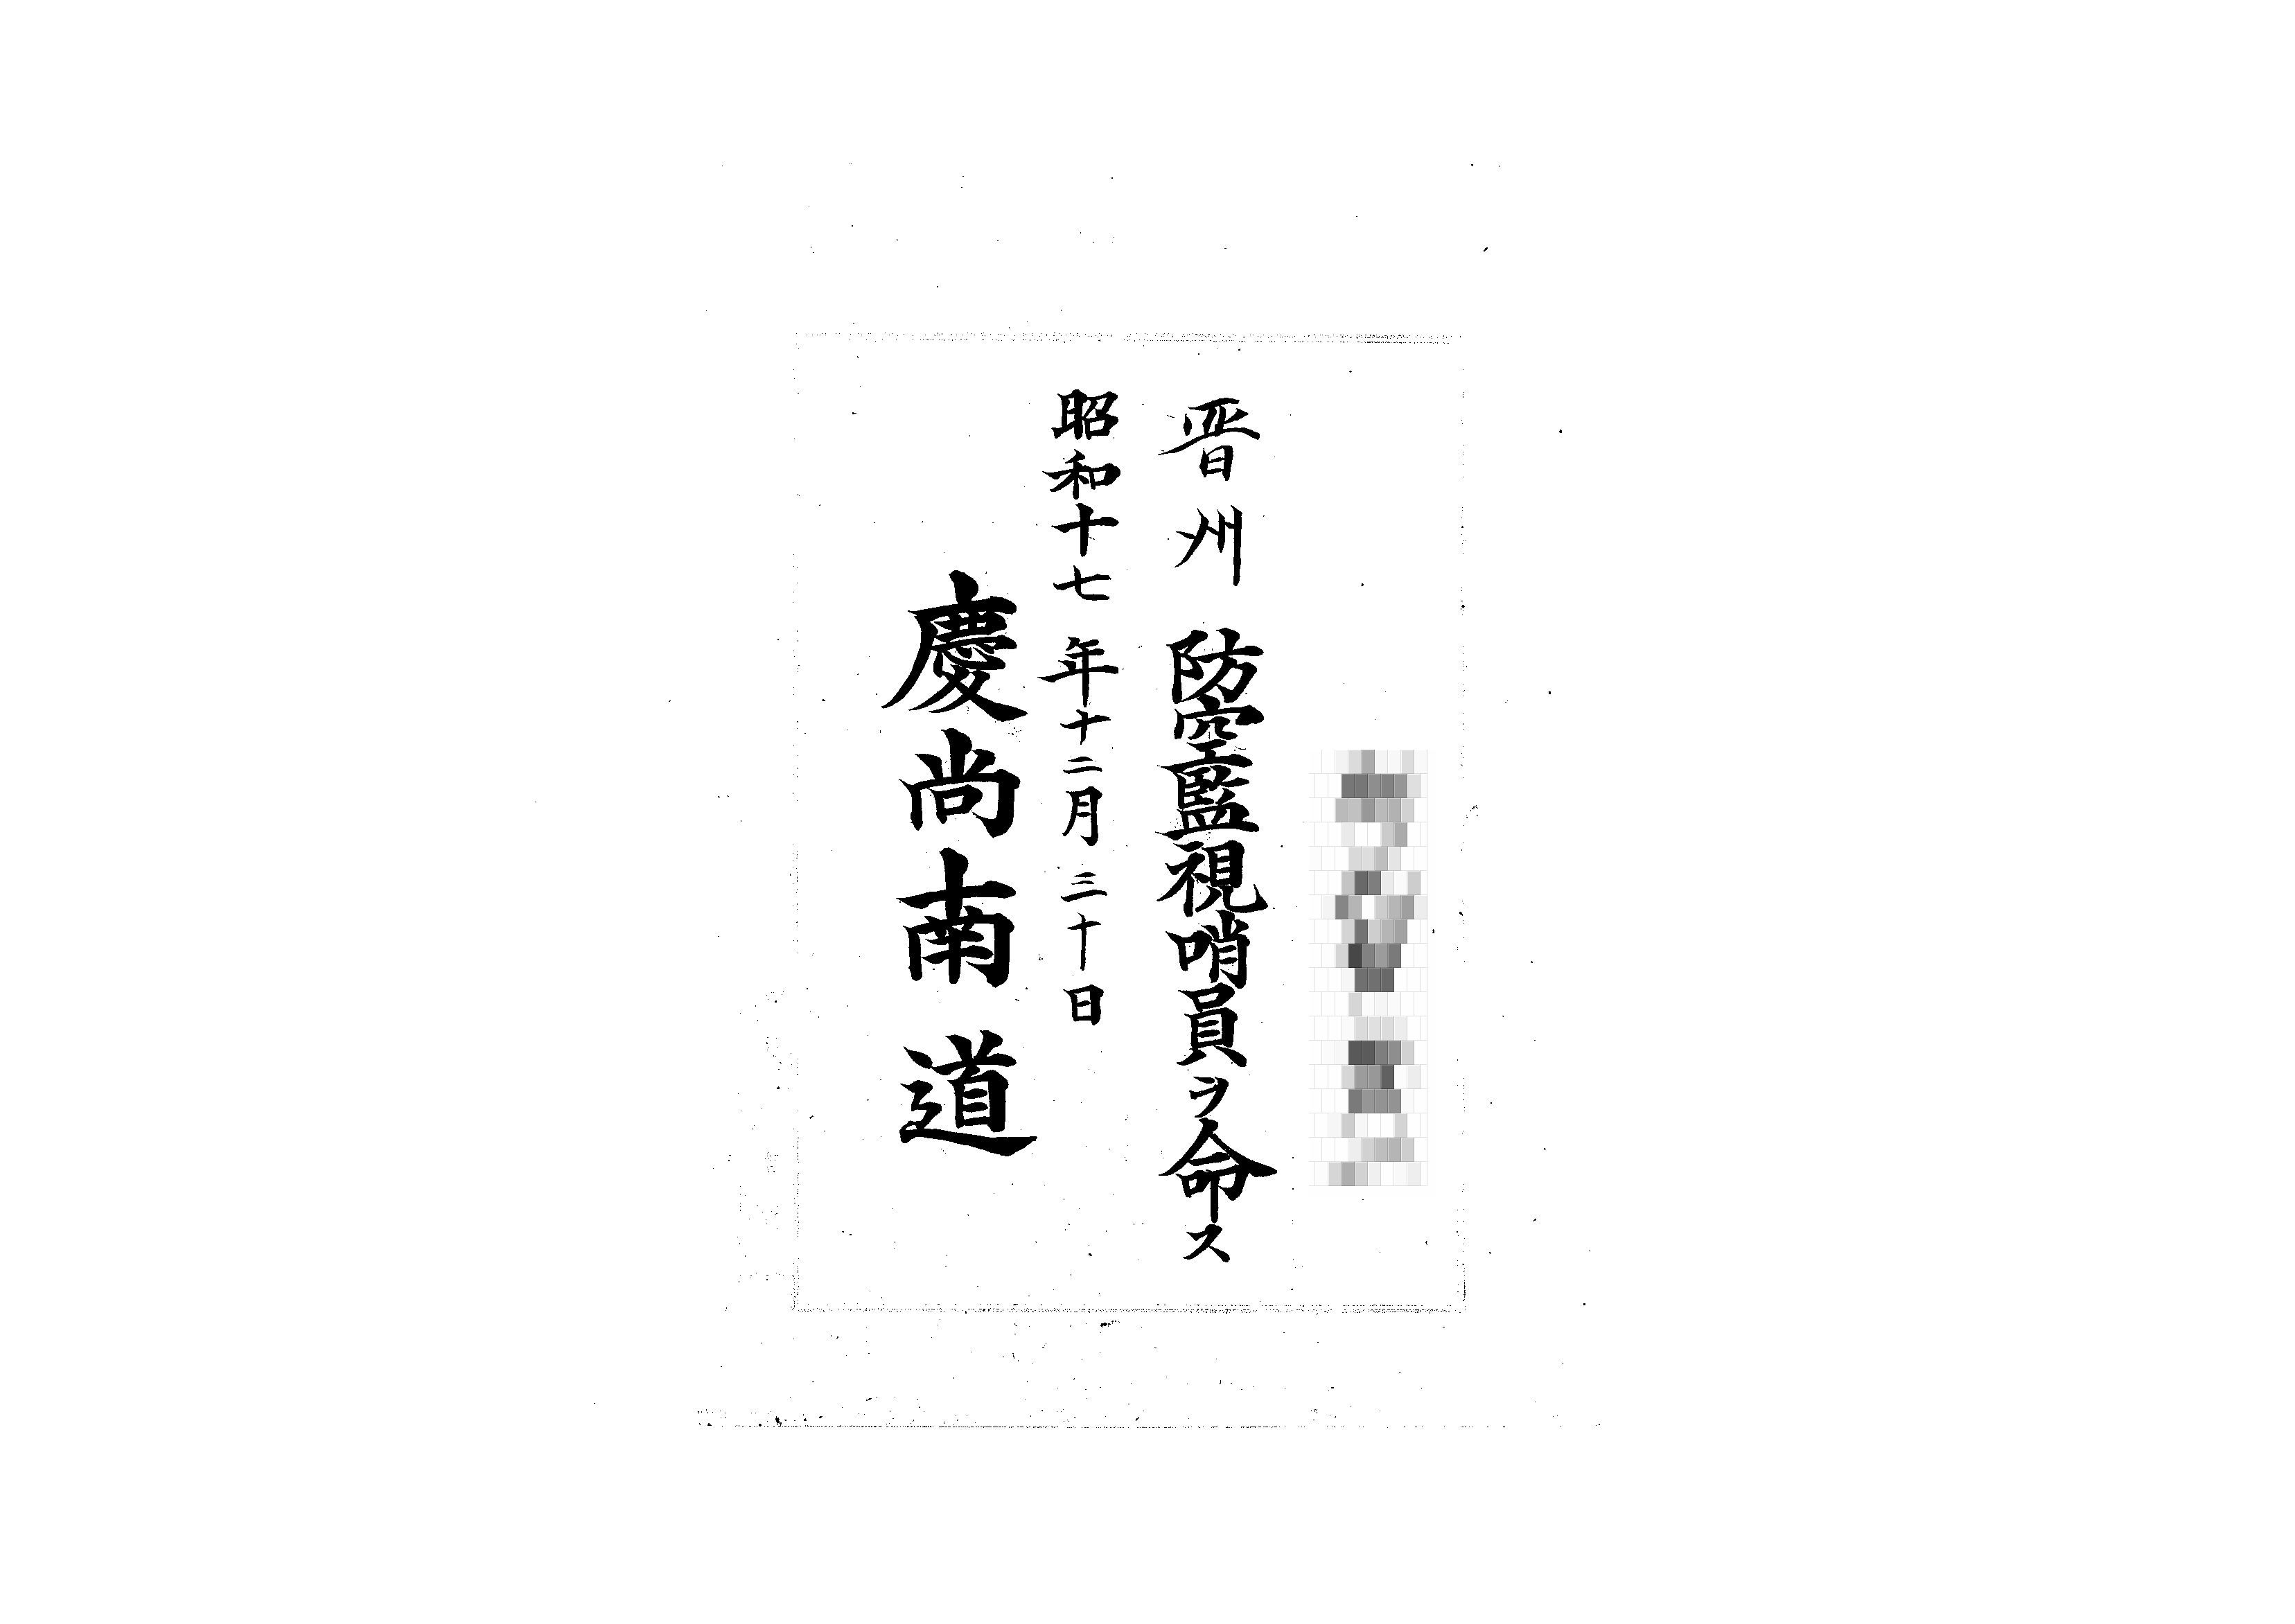 晋州防空監視哨員ヲ命ス
昭和十七年十二月三十日
慶尚南道